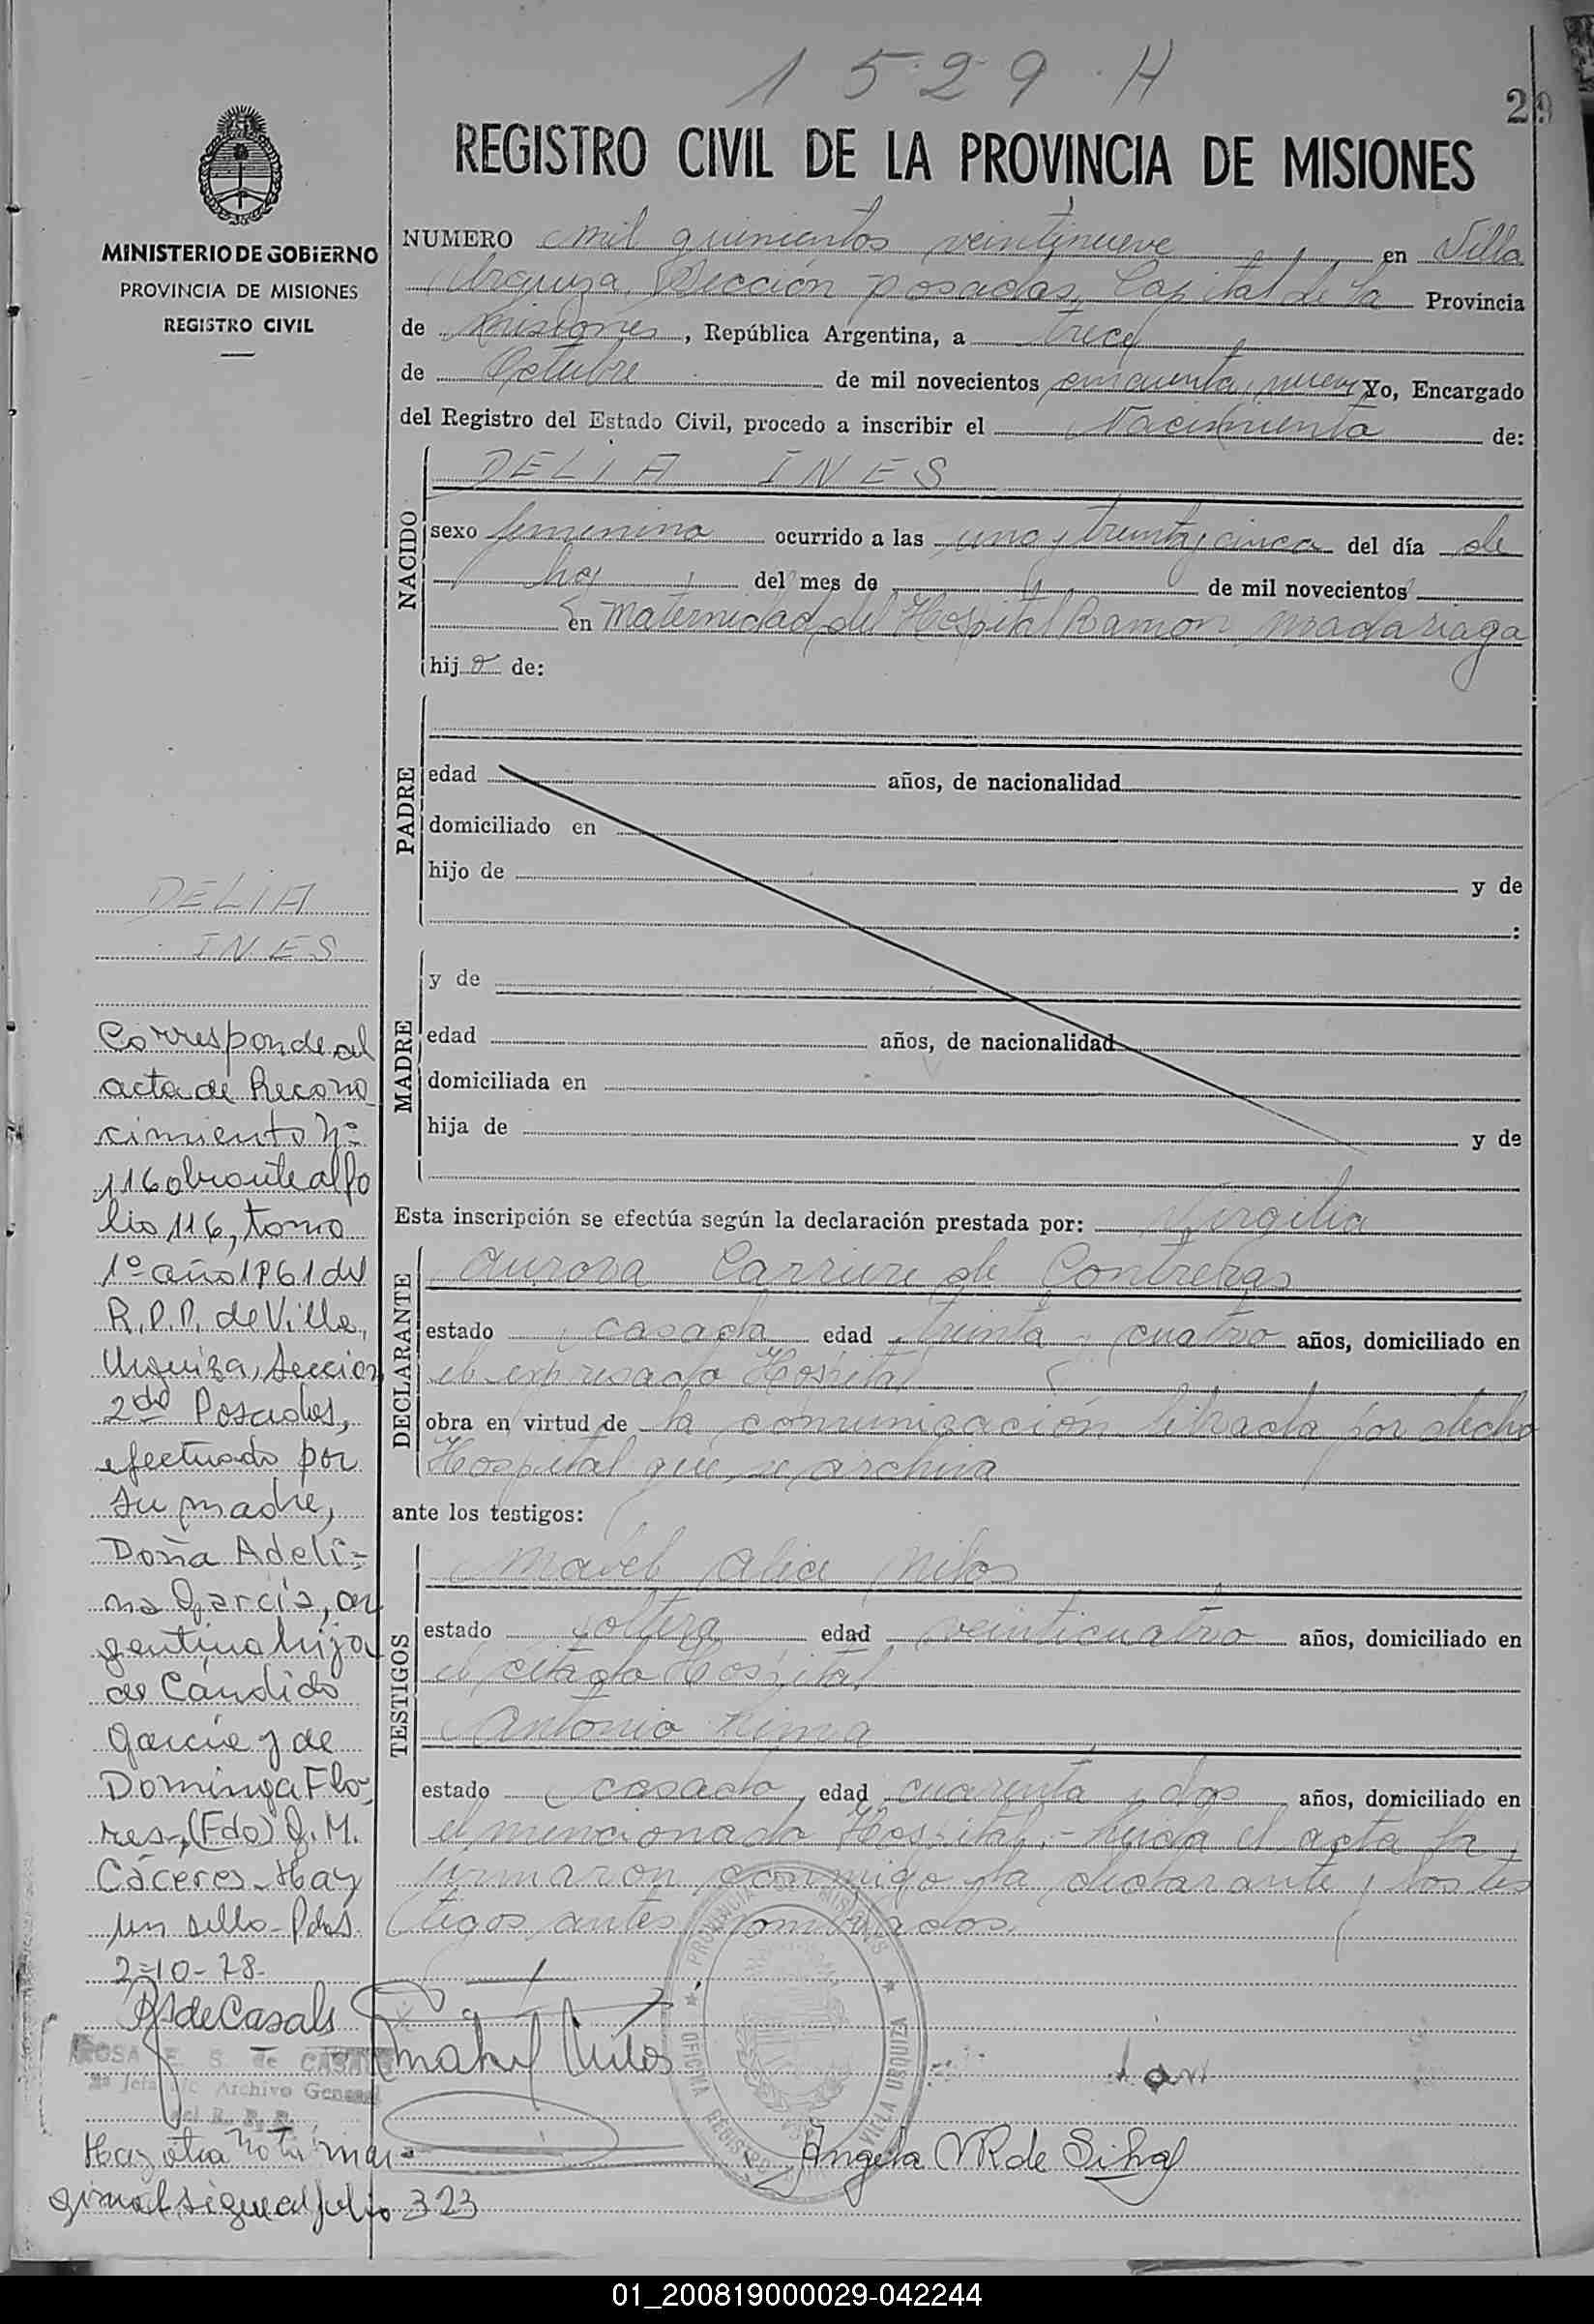 1529 H
29
REGISTRO CIVIL DE LA PROVINCIA DE MISIONES
MINISTERIO DE GOBIERNO
PROVINCIA DE MISIONES
REGISTRO CIVIL
NUMERO mil quinientos veintinueve en Villa
Urquiza, Sección posadas, Capital de la Provincia
de Misiones, República Argentina, a trece
de Octubre de mil novecientos cincuenta y nueve Yo, Encargado
del Registro del Estado Civil, procedo a inscribir el Nacimiento de:
NACIDO
DELIA INES
sexo femenino ocurrido a las una y treinta y cinco del día de
hoy del mes de de mil novecientos
en Maternidad del Hospital Ramon Madariaga
hija de:
PADRE
edad años, de nacionalidad
domiciliado en
hijo de y de
:
MADRE
y de
edad años, de nacionalidad
domiciliada en
hija de y de
Esta inscripción se efectúa según la declaración prestada por: Virgilia
DECLARANTE
Aurora Carriere de Contreras
estado casada edad treinta y cuatro años, domiciliado en
el expresado Hospital
obra en virtud de la comunicación librada por dicho
Hospital que se archiva
ante los testigos:
TESTIGOS
Mabel Alicia Milos
estado soltera edad veinticuatro años, domiciliado en
el citado Hospital
Antonio Rima
estado casado edad cuarenta y dos años, domiciliado en
el mencionado Hospital.- Leida el acta la
firmaron conmigo la declarante y los tes
tigos antes nombrados.
DELIA
INES
Corresponde al
acta de Recono
cimiento Nº
116 obrante al fo
lio 116, tomo
1º año 1961 del
R.P.P. de Villa
Urquiza, Seccion
2da Posadas,
efectuado por
su madre,
Doña Adeli-
na García, ar
gentina hija
de Cándido
García y de
Dominga Flo-
res, (Fdo) J. M.
Cáceres - Hay
un sello - Pdas
2-10-78.
RSdeCasals
ROSA E. S. de CASALS
2ª Jefa Archivo General
del R. P. P.
Mabel Milos
PROVINCIA DE MISIONES
OFICINA REGISTRO VILLA URQUIZA
Angela VR de Silva
Hay otra nota mar-
ginal sigue al folio 323
01_200819000029-042244